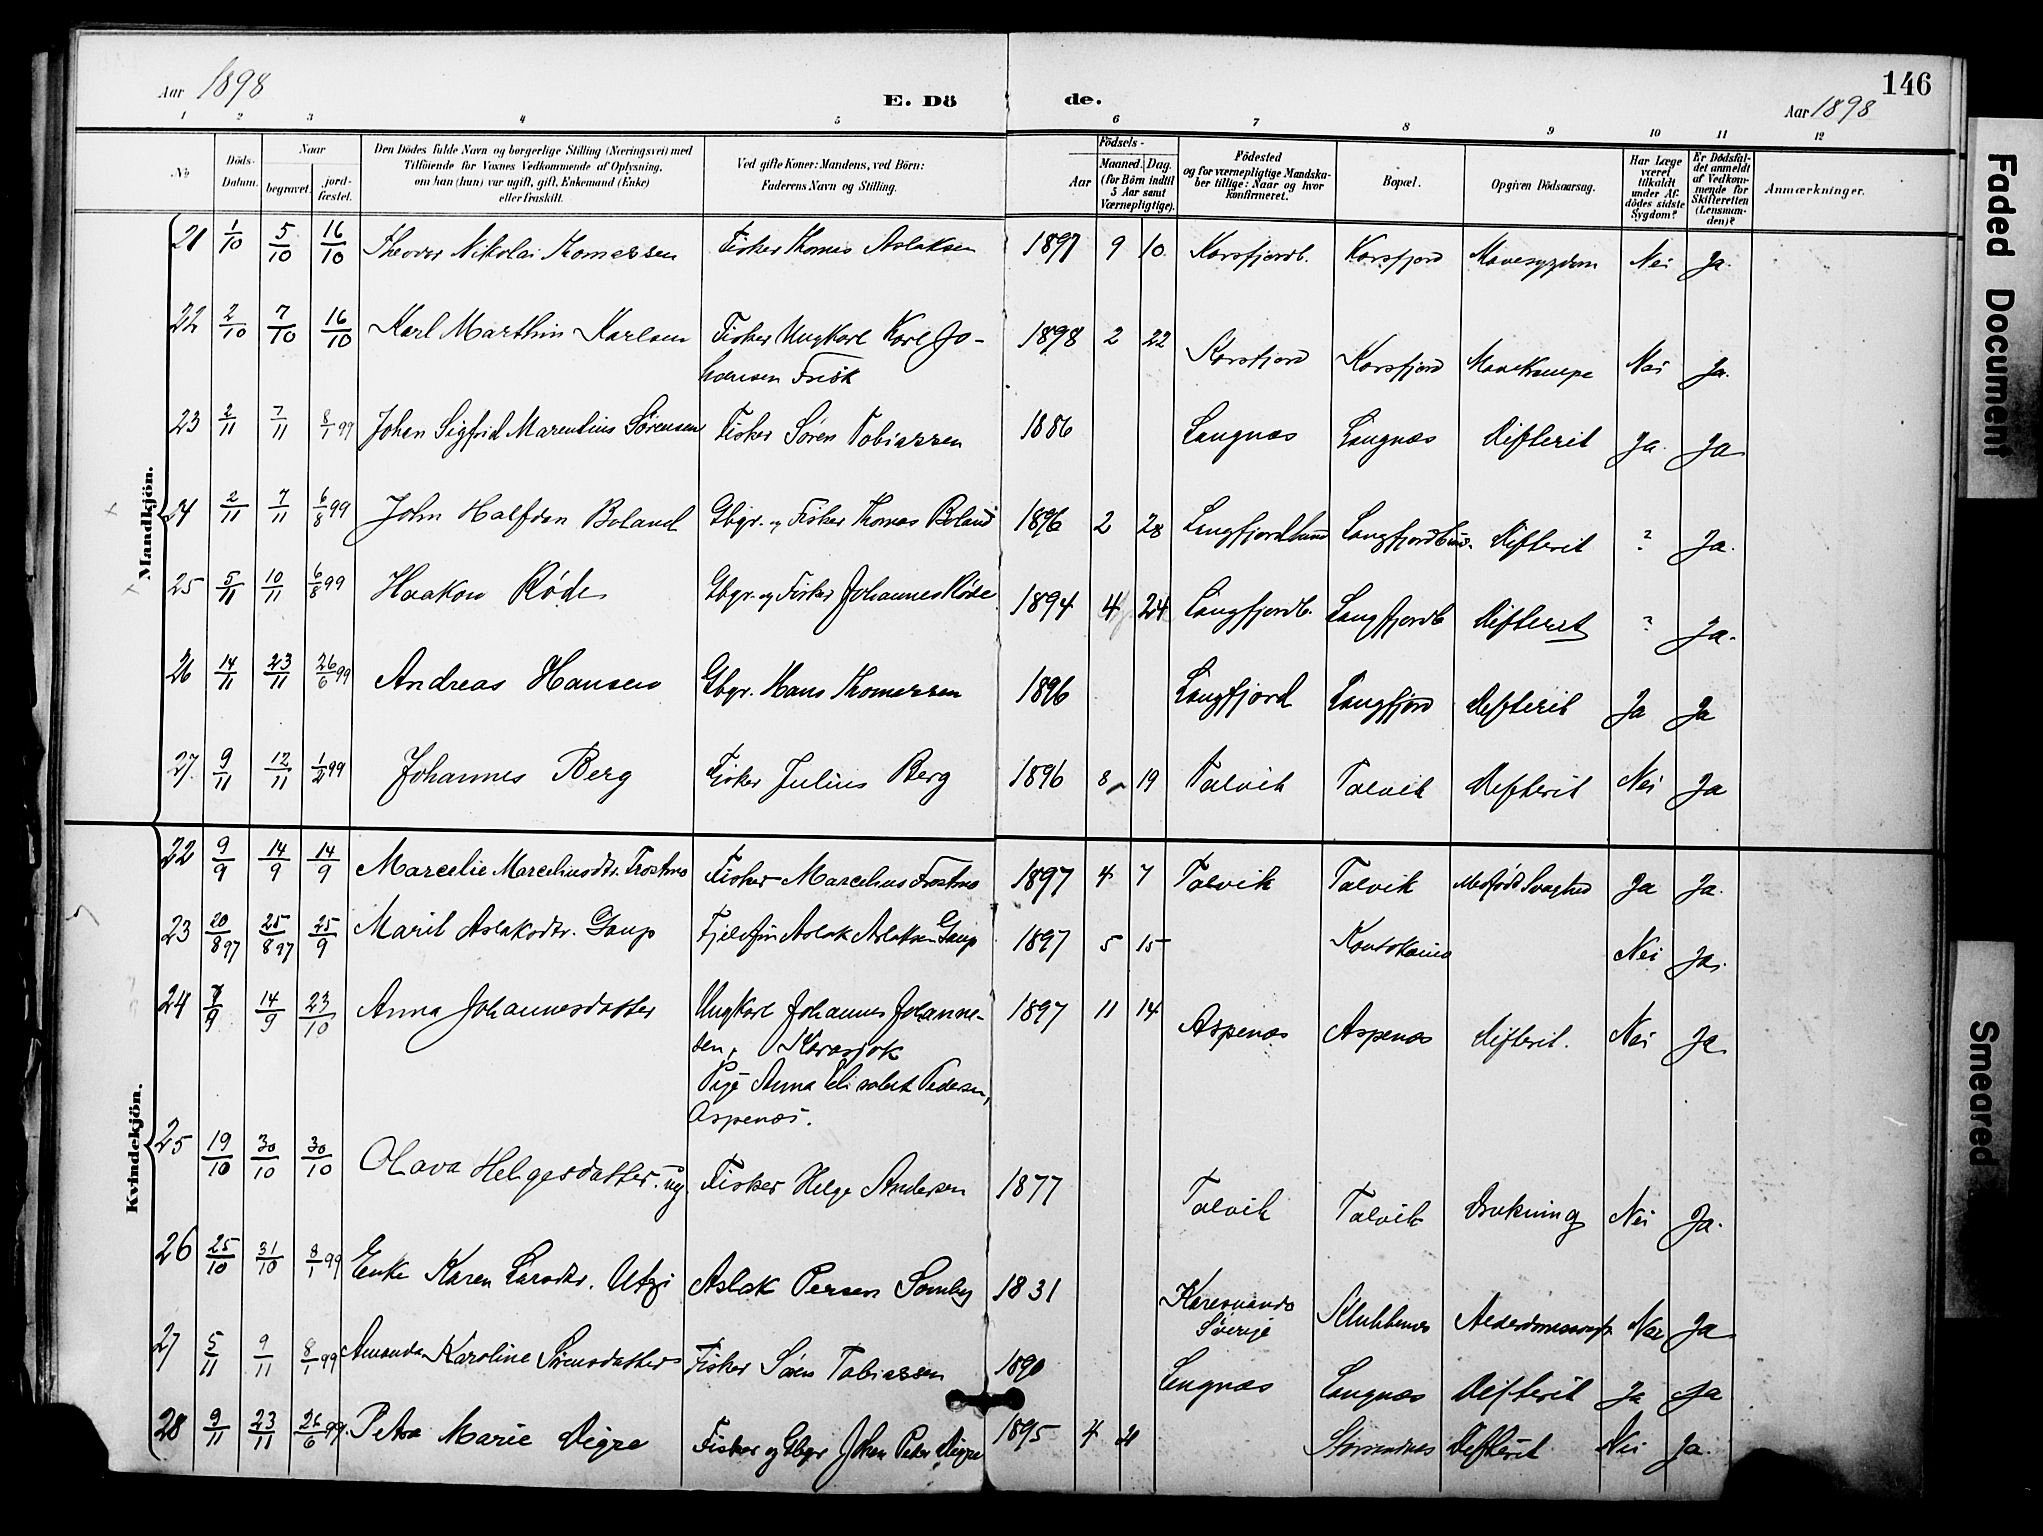 146
Aar 1898
E. Dö de.
Aar 1898
1 2 3 4 5 6 7 8 9 10 11 12
No
Döds-Datum.
Naar
begravet.
jord-fæstet.
Den Dödes fulde Navn og borgerlige Stilling (Næringsvei) med
Tilföiende for Voxnes Vedkommende af Oplysning,
om han (hun) var ugift, gift, Enkemand (Enke)
eller fraskilt.
Ved gifte Koner: Mandens, ved Börn:
Faderens Navn og Stilling.
Födsels-
Aar
Maaned. Dag.
(for Börn indtil
5 Aar samt
Værnepligtige).
Födested
og for værnepligtige Mandska-
ber tillige: Naar og hvor
konfirmeret.
Bopæl.
Opgiven Dödsaarsag.
Har Læge
været
tilkaldt
under Af-
dödes sidste
Sygdom?
Er Dödsfal-
det anmeldt
af Vedkom-
mende for
Skifteretten
(Lensman-
den)?
Anmærkninger.
Mandkjön.
21 1/10 5/10 16/10 Theodor Nikolai Thomassen Fisker Thomas Aslaksen 1897 9 10 Korsfjordb. Korsfjord Mavesygdom Nei Ja.
22 2/10 7/10 16/10 Karl Marthin Karlsen Fisker Ungkarl Karl Jo- 1898 2 22 Korsfjord Korsfjord Mavekrampe Nei Ja.
hansen Frisk
23 2/11 7/11 8/1 99 Johan Sigfrid Marentius Sørensen Fisker Søren Tobiassen 1886 Langnæs Langnæs Difterit Ja. Ja
24 2/11 7/11 6/8 99 John Halfdan Boland Gbgr. og Fisker Thomas Boland 1896 2 28 Langfjordbund Langfjordbund. Difterit ? Ja.
25 5/11 10/11 6/8 99 Haakon Røde Gbgr. og Fisker Johannes Røde 1894 4 24 Langfjordb. Langfjordb Difterit ? Ja.
26 14/11 23/11 26/6 99 Andreas Hansen Gbgr. Hans Thomassen 1896 Langfjord Langfjord Difterit Ja Ja
27. 9/11 12/11 1/2 99 Johannes Berg Fisker Julius Berg 1896 8 19 Talvik Talvik Difterit Nei Ja
Kvindekjön.
22 9/9 14/9 14/9 Marcelie Marceliusdtr. Trostnes Fisker Marcelius Trostnes 1897 4 7 Talvik Talvik Medfødt Svaghed Ja Ja.
23 20/8 97 25/8 97 25/9 Marit Aslaksdtr. Gaup Fjeldfin Aslak Aslaksen Gaup 1897 5 15 Kautokeino Nei Ja.
24 /9 14/9 23/10 Anna Johannesdatter Ungkarl Johannes Johanne- 1897 11 14 Aspenæs Aspenæs Difterit. Nei Ja
sen, Karasjok
Pige Anna Elisabet Pedersen,
Aspenæs.
25 19/10 30/10 30/10 Olava Helgesdatter. ug. Fisker Helge Andersen 1877 Talvik Talvik Drukning Nei Ja.
26 25/10 31/10 8/1 99 Enke Karen Larsdtr. Utzi Aslak Persen Somby 1831 Karesuando Klubbenes Alderdomssvagh. Nei Ja
Sverige
27 5/11 9/11 8/1 99 Amanda Karoline Sørensdatter Fisker Søren Tobiassen 1890 Langnæs Langnæs Difterit Ja Ja
28 9/11 23/11 26/6 99. Petra Marie Digre Fisker og Gbgr Johan Peter Digre 1895 4 21 Storsandnes Difterit Nei Ja.
Faded Document
Smeared